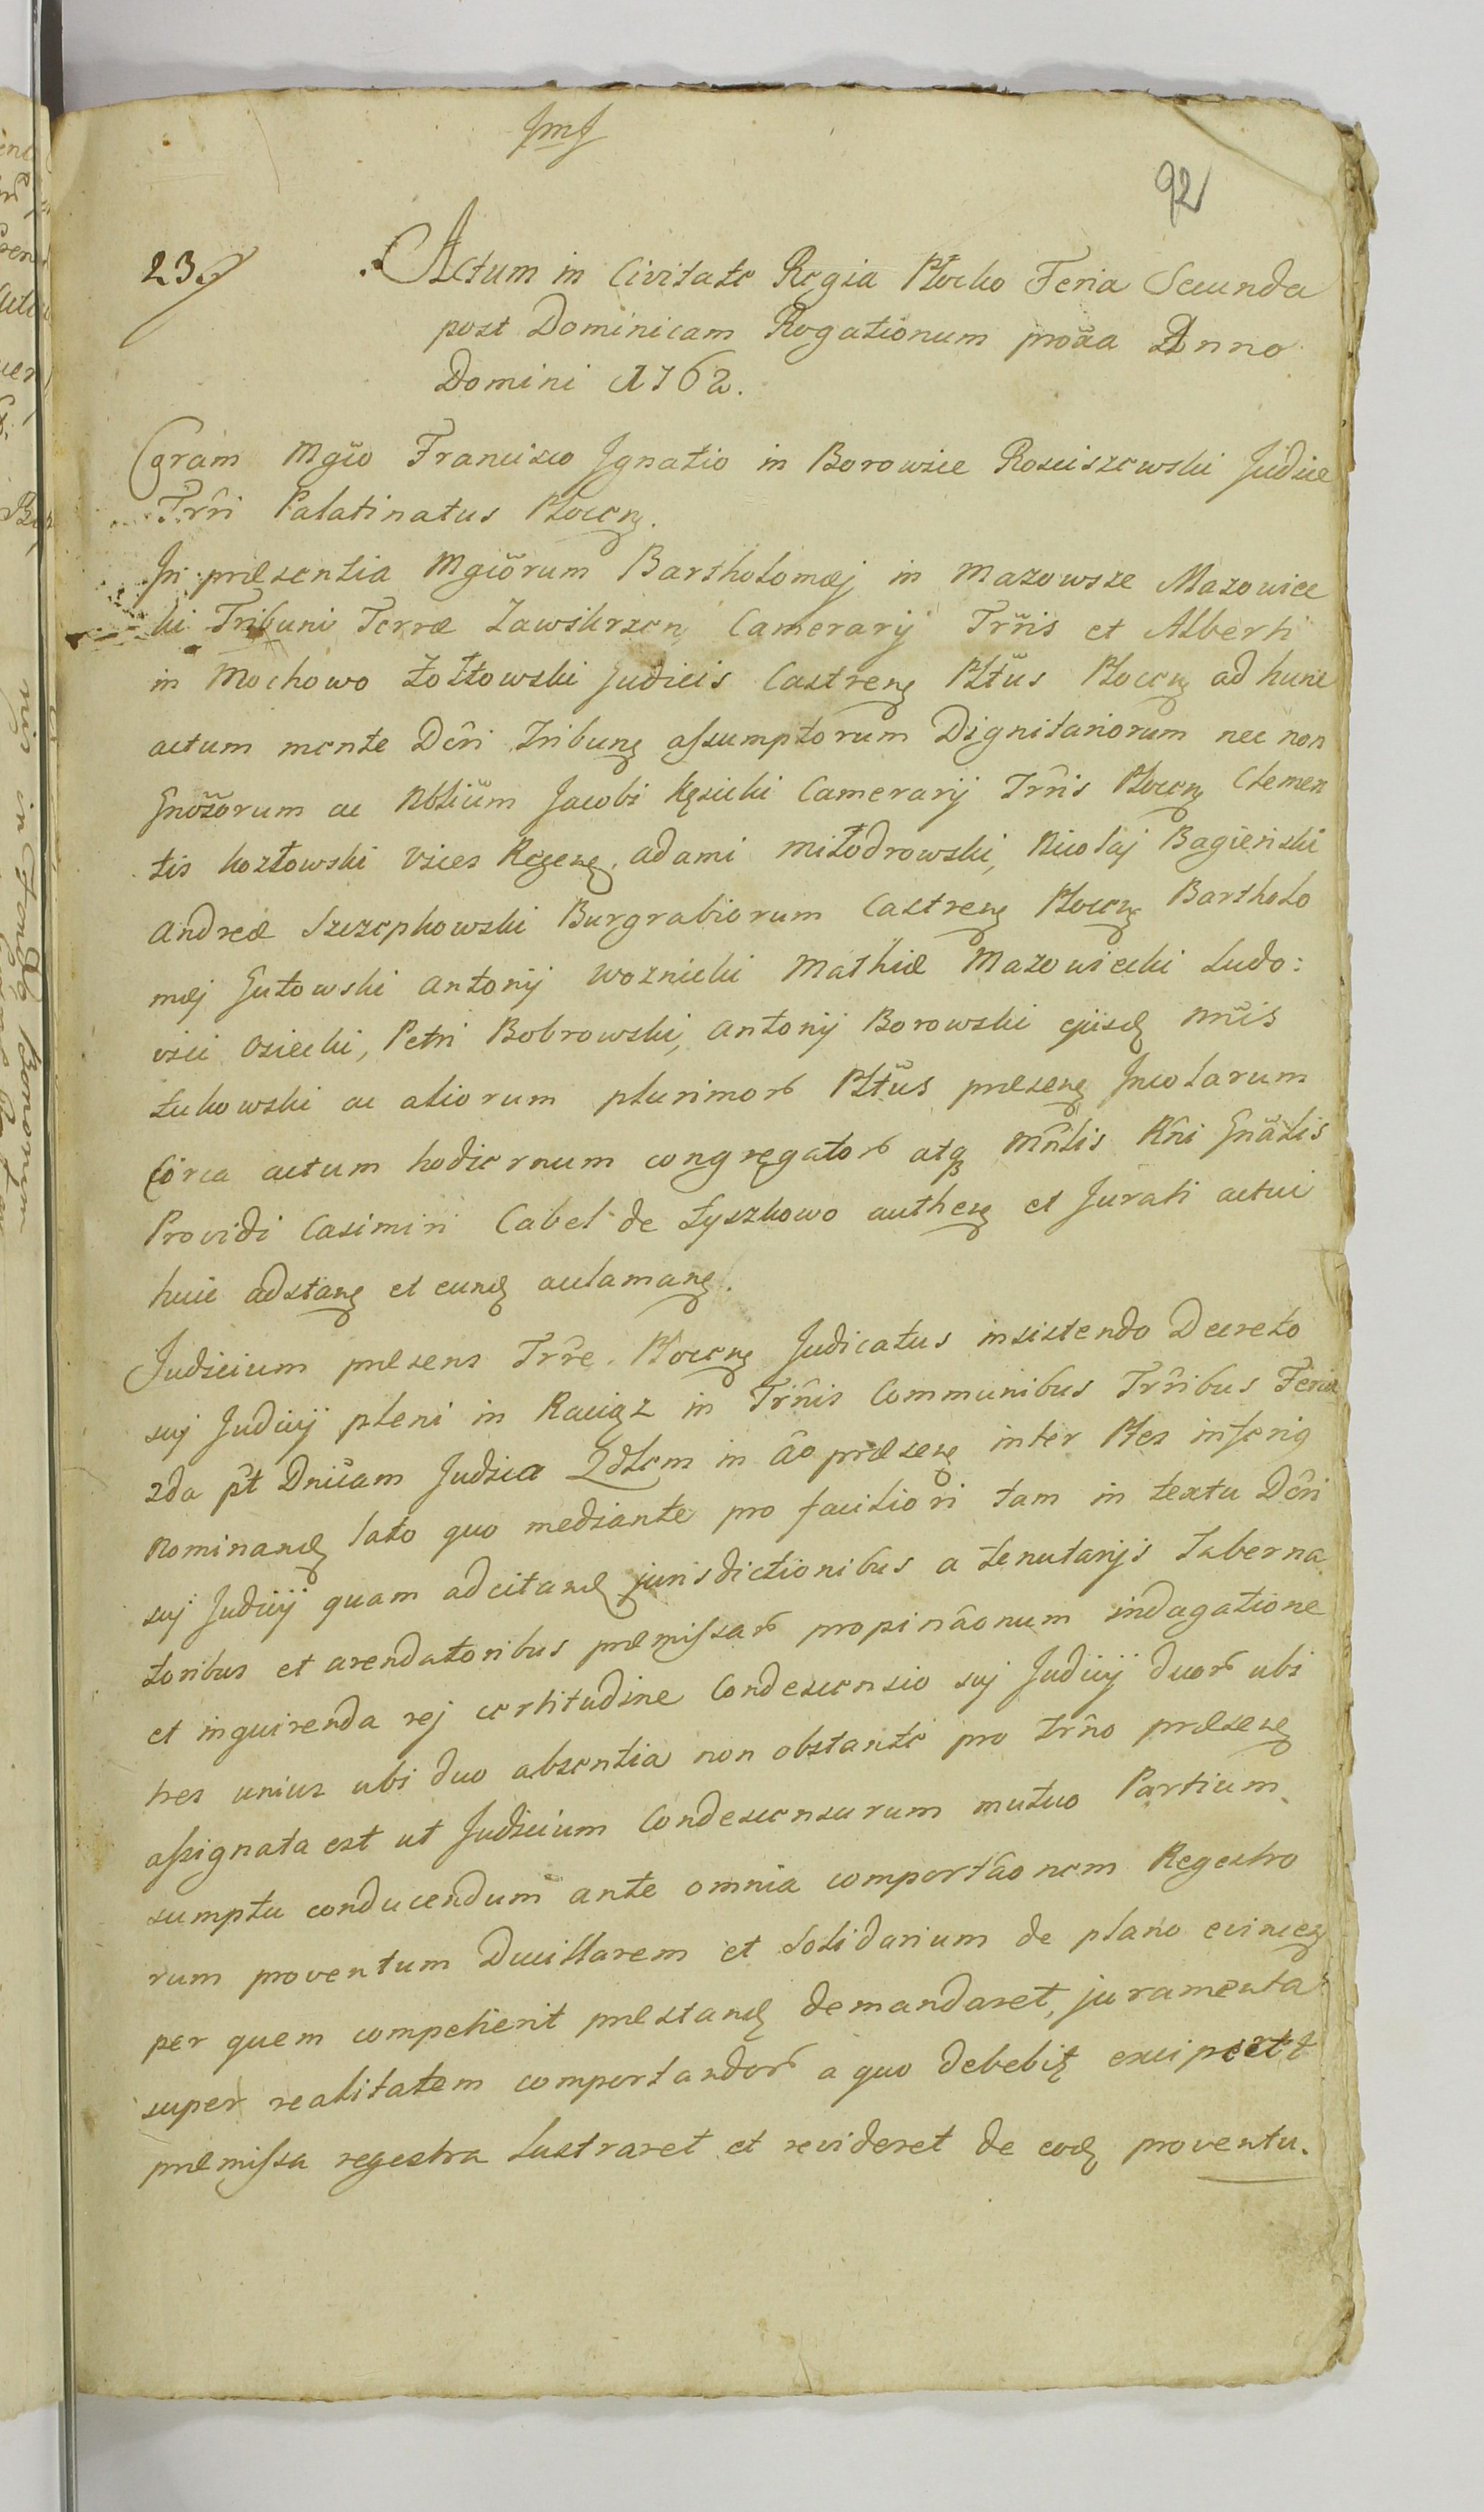 JmJ
92
23
Actum in Civitate Regia Płocko Feria Secunda
post Dominicam Rogationum proxa Anno
Domini 1762.
Coram Mgco Francisco Ignatio in Borowice Rosciszewski Judice
Trri Palatinatus Płocen.
In præsentia Mgcorum Bartholomæj in Mazowsze Mazowiec
ki Tribuni Terræ Zawskrzen Camerarij Trris et Alberti
in Mochowo Żołtowski Judicis Castren Pltus Płocen ad hunc
actum mente Dcri Tribun assumptorum Dignitariorum nec non
Gnosorum ac Nblium Jacobi Kęsicki Camerarij Trris Płocen Clemen
tis Kozłowski Vices Regen. Adami Miłodrowski, Nicolaj Bagieński
Andreæ Szczepkowski Burgrabiorum Castren Płocen Bartholo
mæj Gutowski Antonij Woznicki Mathiæ Mazowiecki Ludo:
vici Osiecki, Petri Bobrowski, Antonij Borowski ejusd Nnis
Łukowski ac aliorum plurimor Pltus præsen Incolarum
Circa actum hodiernum congregator atq Mnlis Rni Gnalis
Providi Casimiri Cabel de Łyszkowo authen et Jurati actui
huic adstan et eund aclaman.
Judicium præsens Trre. Płocen Judicatus insistendo Decreto
suj Judicij pleni in Raciąz in Trnis Communibus Trribus Feria
2da pt Dnicam Judica Qdlem in Ao præsen inter Ptes inferiq
Nominand lato quo mediante pro faciliori tam in textu Dcri
suj Judicij quam ad citand jurisdictionibus a tenutarijs taberna
toribus et arendatoribus præmissar propinaonum indagatione
et inquirenda rej certitudine Condescensio suj Judicij duor ubi
tres unius ubi duo absentia non obstante pro trno præsen
assignata est ut Judicium Condescensurum mutuo Partium
sumptu conducendum ante omnia comportaonem Regestro
rum proventum Ducillarem et Solidarium de plano evincen
per quem competierit præstand demandaret, juramenta
super realitatem comportandor a quo debebit exciperet
præmissa regestra lustraret et revideret de eod proventu.